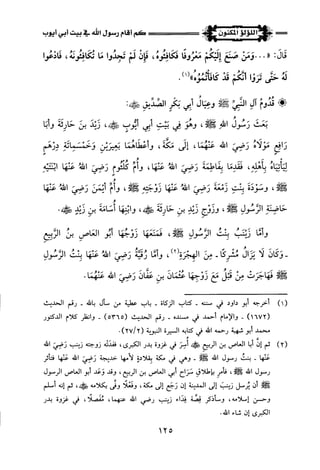 اللؤلؤ المكنون
كم أقام رسول الله ﷺ في بيت أبي أيوب
قَالَ: «...وَمَنْ صَنَعَ إِلَيْكُمْ مَعْرُوفًا فَكَافِئُوهُ، فَإِنْ لَمْ تَجِدُوا مَا تُكَافِئُونَهُ، فَادْعُوا
لَهُ حَتَّى تَرَوْا أَنَّكُمْ قَدْ كَافَأْتُمُوهُ»(١).
قُدُومُ آلِ النَّبِيِّ ﷺ وعِيَالُ أَبِي بَكْرٍ الصِّدِّيقِ ﷺ:
بَعَثَ رَسُولُ اللهِ ﷺ، وهُوَ فِي بَيْتِ أَبِي أَيُّوبَ ﷺ، زَيْدَ بنَ حَارِثَةَ ﷺ وأَبَا
رَافِعٍ مَوْلَاهُ رَضِيَ اللهُ عَنْهُمَا، إلَى مَكَّةَ، وأعْطَاهُمَا بَعِيرَيْنِ وَخَمْسَمِائَةِ دِرْهَمٍ
لِيَأْتِيَاهُ بِأَهْلِهِ، فَقَدِمَا بِفَاطِمَةَ رَضِيَ اللهُ عَنْهَا، وأُمِّ كُلْثُومٍ رَضِيَ اللهُ عَنْهَا ابْنَتَيْهِ
ﷺ، وسَوْدَةَ بِنْتِ زَمْعَةَ رَضِيَ اللهُ عَنْهَا زَوْجَتِهِ ﷺ، وأُمِّ أيْمَنَ رَضِيَ اللهُ عَنْهَا
حَاضِنَةِ الرَّسُولِ ﷺ، وزَوْجِ زَيْدِ بنِ حَارِثَةَ ﷺ، وابْنِهَا أُسَامَةَ بنِ زَيْدٍ ﷺ.
وأمَّا زَيْنَبُ بِنْتُ الرَّسُولِ ﷺ، فَمَنَعَهَا زَوْجُهَا أَبُو العَاصِ بنُ الرَّبِيعِ
ـ وَكَانَ لَا يَزَالُ مُشْرِكًا ـ مِنَ الهِجْرَةِ(٢)، وأمَّا رُقَيَّةُ رَضِيَ اللهُ عَنْهَا بِنْتُ الرَّسُولِ
ﷺ فَهَاجَرَتْ مِنْ قَبْلُ مَعَ زَوْجِهَا عُثْمَانَ بنِ عَفَّانَ رَضِيَ اللهُ عَنْهُمَا.
(١) أخرجه أبو داود في سننه ـ كتاب الزكاة ـ باب عطية من سأل بالله ـ رقم الحديث
(١٦٧٢) ـ والإمام أحمد في مسنده ـ رقم الحديث (٥٣٦٥) ـ وانظر كلام الدكتور
محمد أبو شهبة رحمه الله في كتابه السيرة النبوية (٢٧/٢).
(٢) ثم إنَّ أبا العاص بن الربيع ﷺ أُسِرَ في غزوة بدر الكبرى، ففدَتْه زوجته زينب رَضِيَ اللهُ
عَنْهَا ـ بنتُ رسول الله ﷺ ـ وهي في مكة بقلادةٍ لأمها خديجة رَضِيَ اللهُ عَنْهَا فتأثر
رسول الله ﷺ، فأمر بإطلاقِ سَرَاحِ أبي العاص بن الربيع، وقد وَعَد أبو العاص الرسول
ﷺ أن يُرسل زينبَ إلى المدينة إن رَجَع إلى مكة، وفَعْلًا وَفَّى بكلامه ﷺ، ثم إنه أسلم
وحسن إسلامه، وسأذكر قِصَّة فِدَاء زينب رضي الله عنهما، مُفَصلًا، في غزوة بدر
الكبرى إن شاء الله.
١٢٥